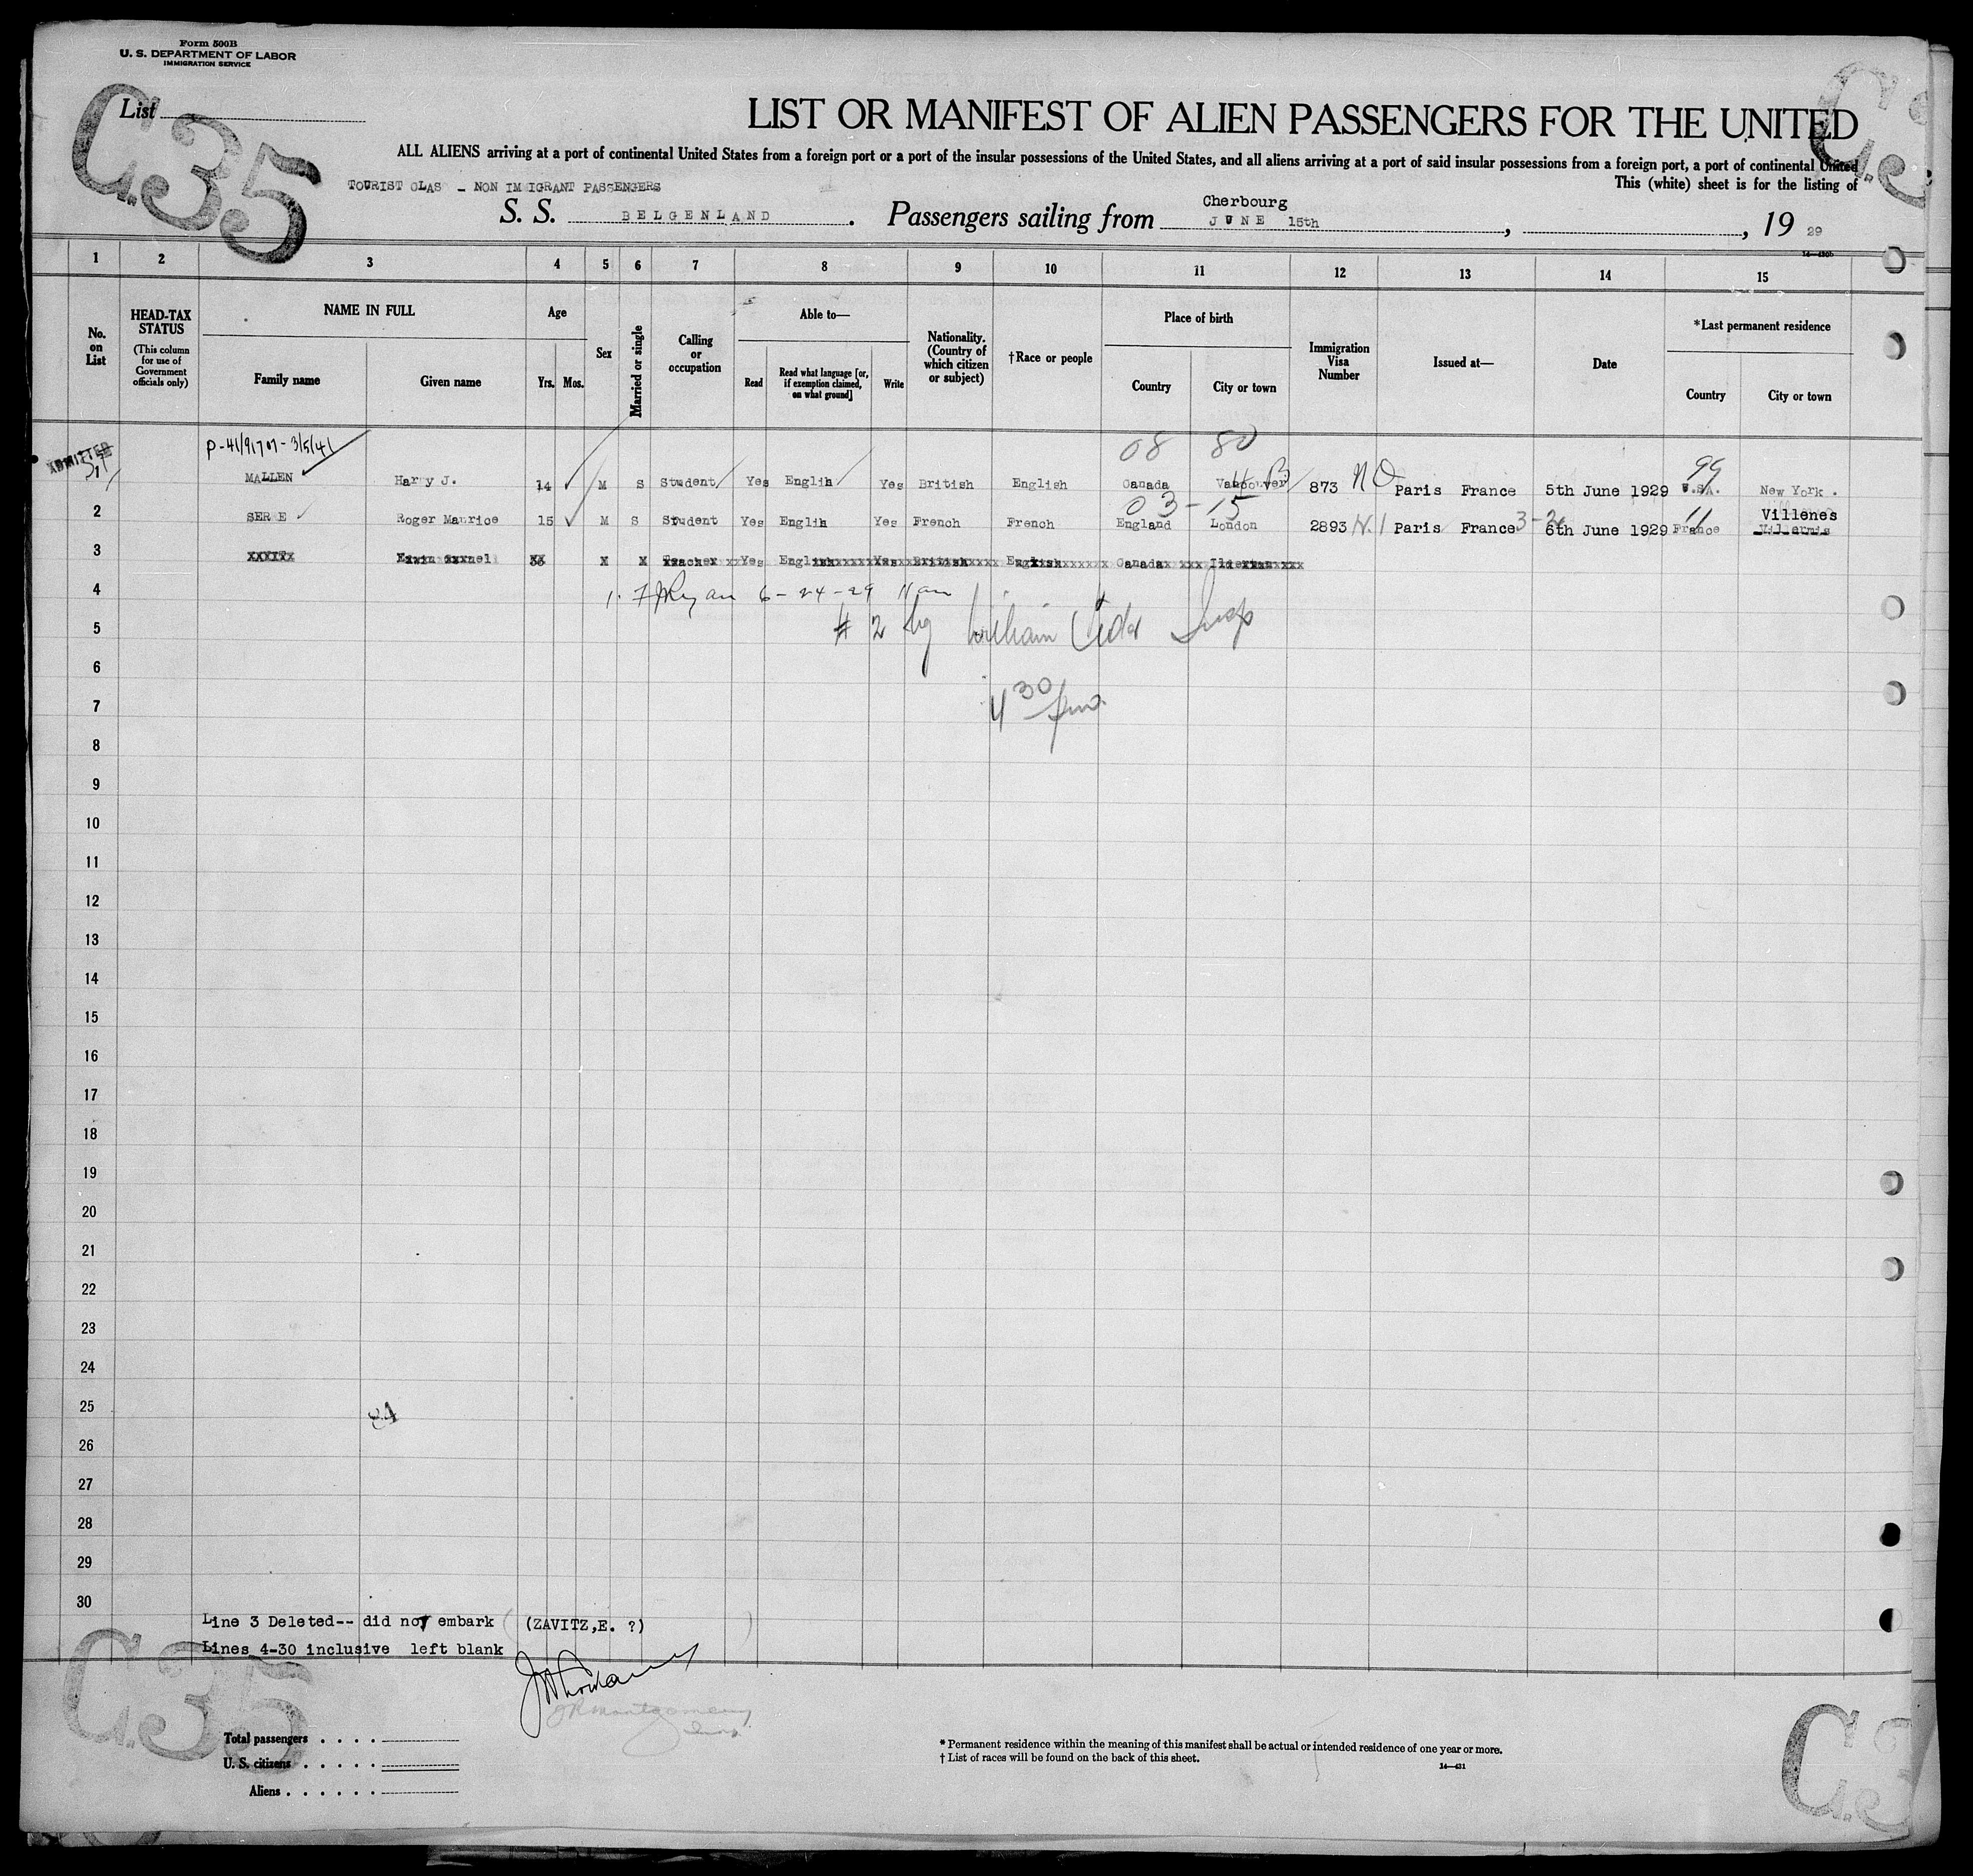 Form 500B
U. S. DEPARTMENT OF LABOR
IMMIGRATION SERVICE
List
C.35
LIST OR MANIFEST OF ALIEN PASSENGERS FOR THE UNITED
ALL ALIENS arriving at a port of continental United States from a foreign port or a port of the insular possessions of the United States, and all aliens arriving at a port of said insular possessions from a foreign port, a port of continental United
This (white) sheet is for the listing of
TOURIST CLAS - NON IMMIGRANT PASSENGERS
S. S. BELGENLAND . Passengers sailing from Cherbourg JUNE 15th , , 19 29
14—430b
1 2 3 4 5 6 7 8 9 10 11 12 13 14 15
No. on List
HEAD-TAX STATUS
(This column for use of Government officials only)
NAME IN FULL
Family name Given name
Age
Yrs. Mos.
Sex
Married or single
Calling or occupation
Able to—
Read Read what language [or, if exemption claimed, on what ground] Write
Nationality. (Country of which citizen or subject)
†Race or people
Place of birth
Country City or town
Immigration Visa Number
Issued at—
Date
*Last permanent residence
Country City or town
P-41/91707-3/5/41
08 80 99
ADMITTED
MALLEN Harry J. 14 M S Student Yes Englih Yes British English Canada Vancouver 873 NQ Paris France 5th June 1929 U.SA. New York .
03-15 11 Villenes
2 SER E Roger Maurice 15 M S Student Yes Englih Yes French French England London 2893 Paris France 6th June 1929 France
3
4 1. 6-24-29
5 # 2 by William
6
7 4 30 pm
8
9
10
11
12
13
14
15
16
17
18
19
20
21
22
23
24
25 84
26
27
28
29
30
Line 3 Deleted-- did not embark (ZAVITZ,E. ?)
Lines 4-30 inclusive left blank
C.35
JRMontgomery
Insp.
Total passengers . . . .
U. S. citizens . . . . .
Aliens . . . . . .
* Permanent residence within the meaning of this manifest shall be actual or intended residence of one year or more.
† List of races will be found on the back of this sheet.
14—431
C.3